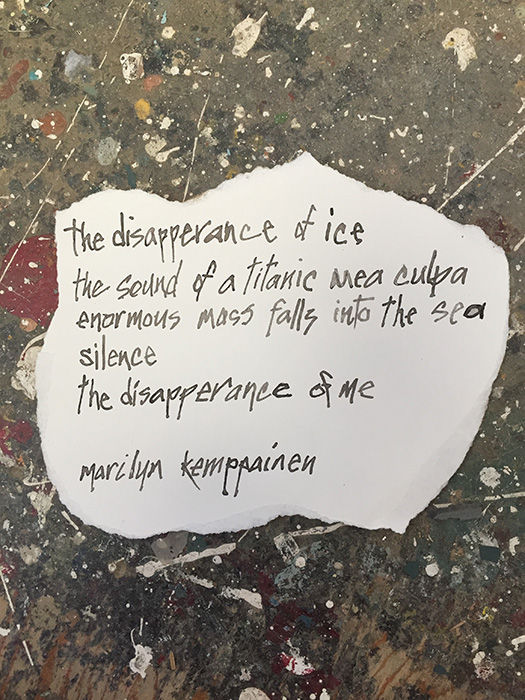 the disapperance of ice
the sound of a titanic mea culpa
enormous mass falls into the sea
silence
the disapperance of me
marilyn kemppainen